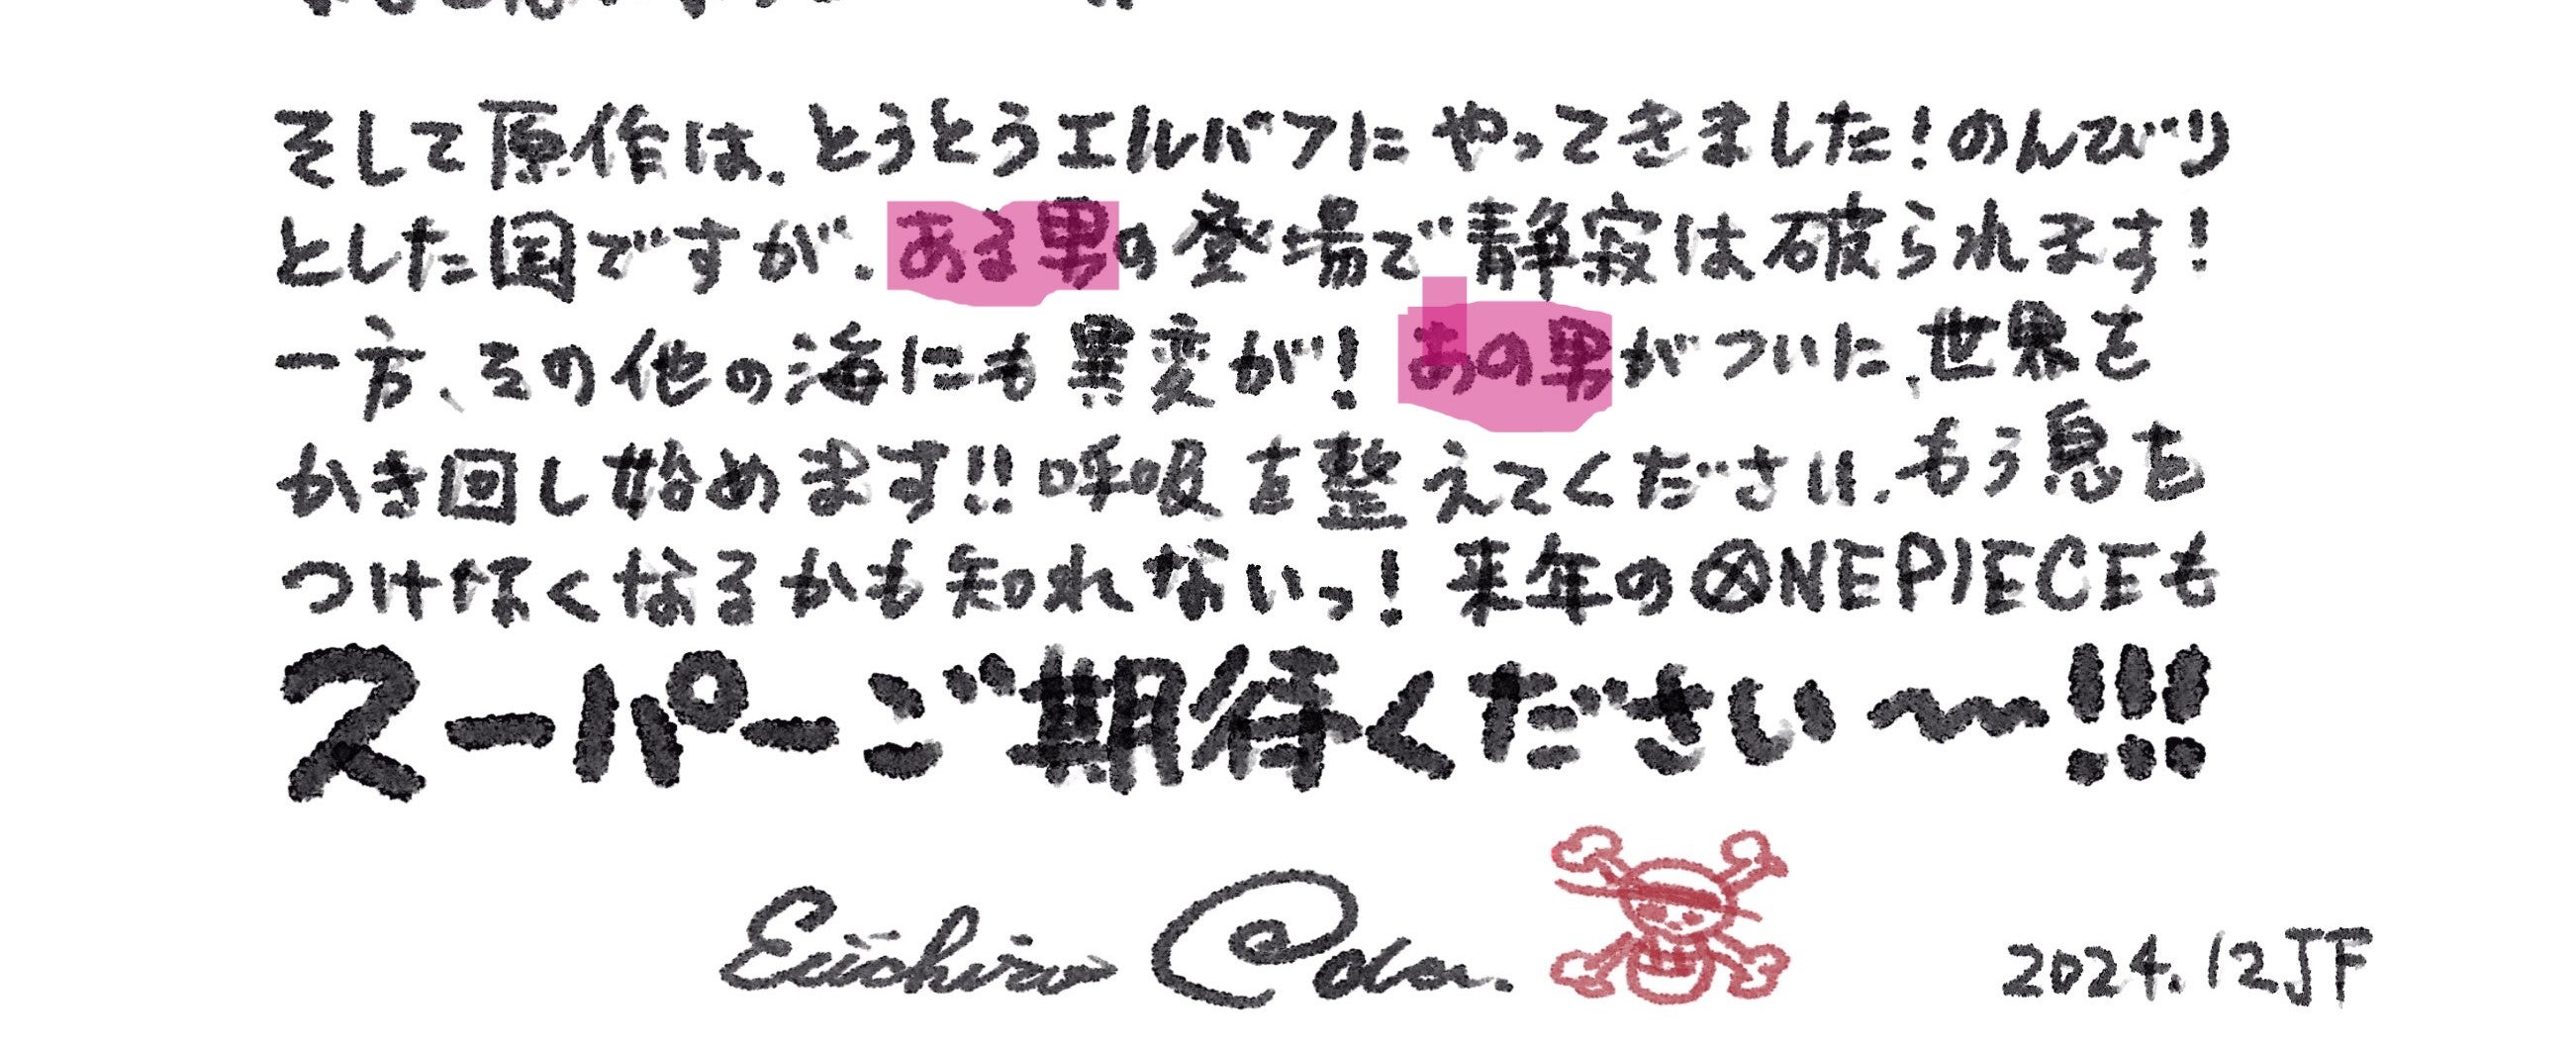 そして原作は、とうとうエルバフにやってきました！のんびり
とした国ですが、ある男の登場で静寂は破られます！
一方、その他の海にも異変が！あの男がついに、世界を
かき回し始めます!!呼吸を整えてください、もう息を
つけなくなるかも知れないっ！来年のONEPIECEも
スーパーご期待ください〜!!!
Eiichiro Oda.
2024.12JF